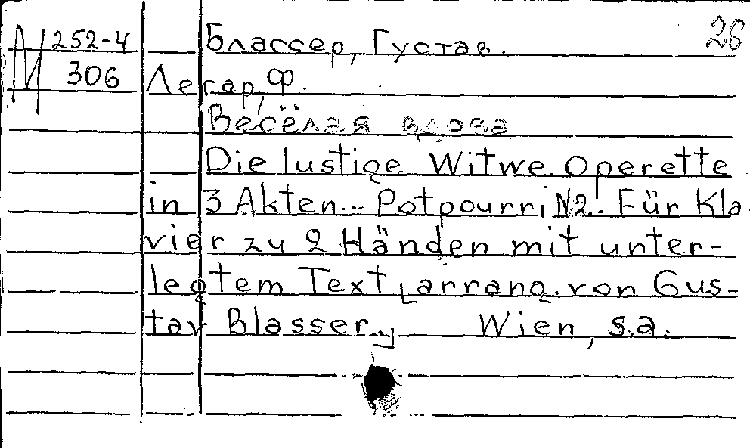 М 252-4 Блассер, Густав. 26
306 Легар, Ф.
Весёлая вдова
Die lustige Witwe. Operette
in 3 Akten.- Potpourri N2. Für Kla-
vier zu 2 Händen mit unter-
legtem Text [arrang. von Gus-
tav Blasser.] Wien, s.a.